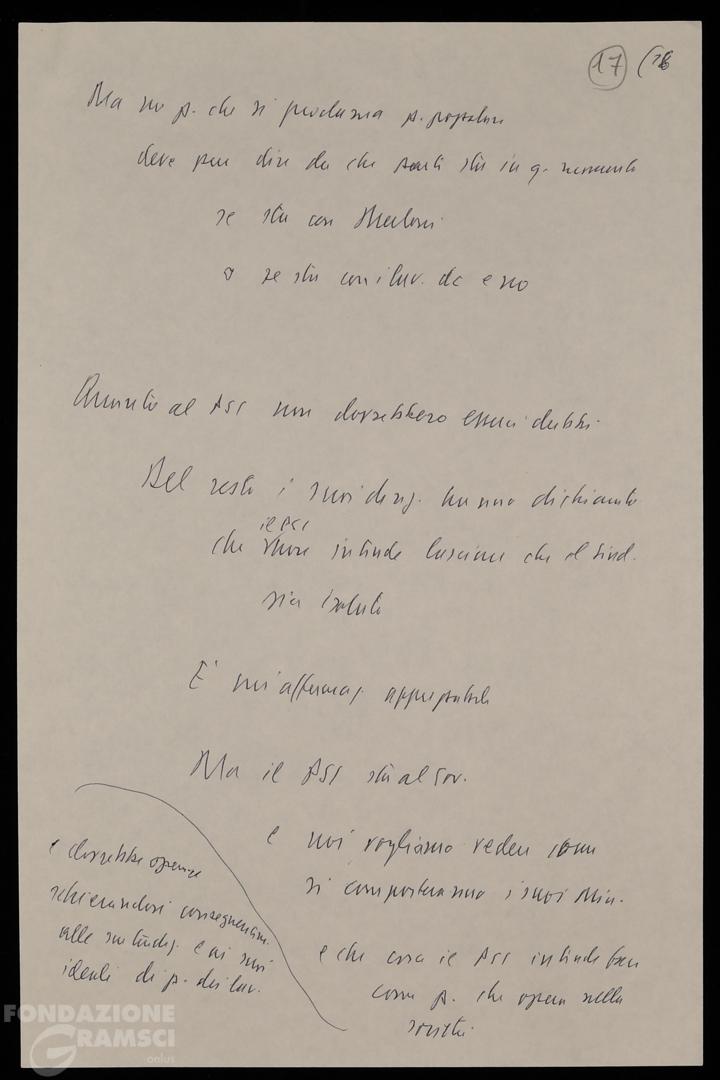 17 (18
Ma un p. che si proclama p. popolare
deve pur dire da che parte sta in q. momento
se sta con Merloni
o se sta con i lav. dc e no
Quanto al PSI non dovrebbero esserci dubbi.
Del resto i suoi dirig. hanno dichiarato
il PSI
che intende lasciare che il sind.
sia isolato
E' un'affermaz. apprezzabile
Ma il PSI sta al gov.
e noi vogliamo vedere come
si comporteranno i suoi Min.
e che cosa il PSI intende fare
come p. che opera nella
società
e dovrebbe operare
schierandosi conseguentem.
alle sue tradiz. e ai suoi
ideali di p. dei lav.
FONDAZIONE
GRAMSCI
onlus